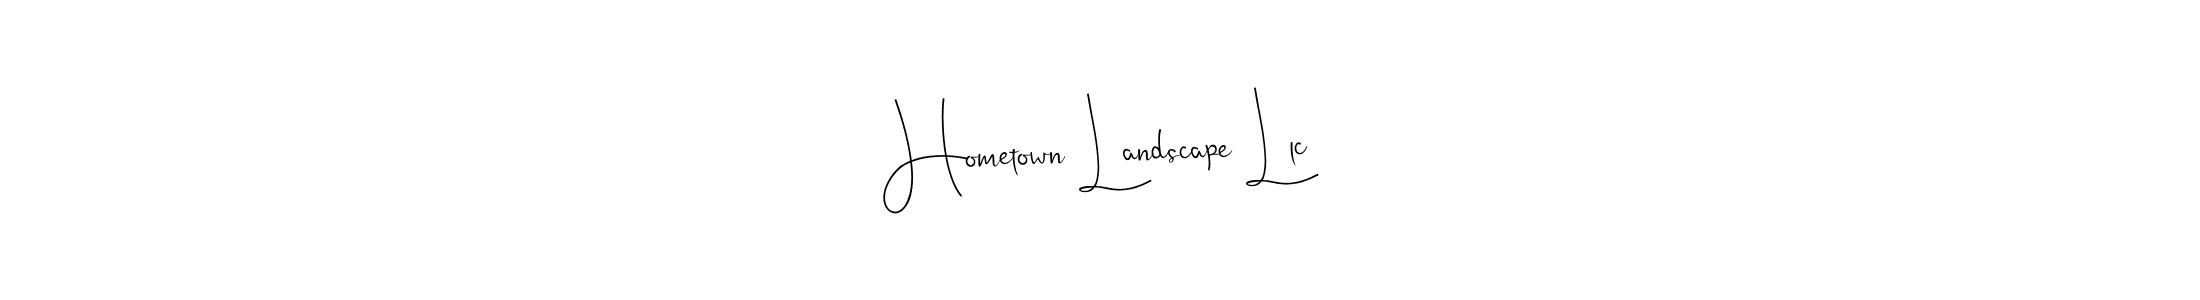 Hometown Landscape Llc